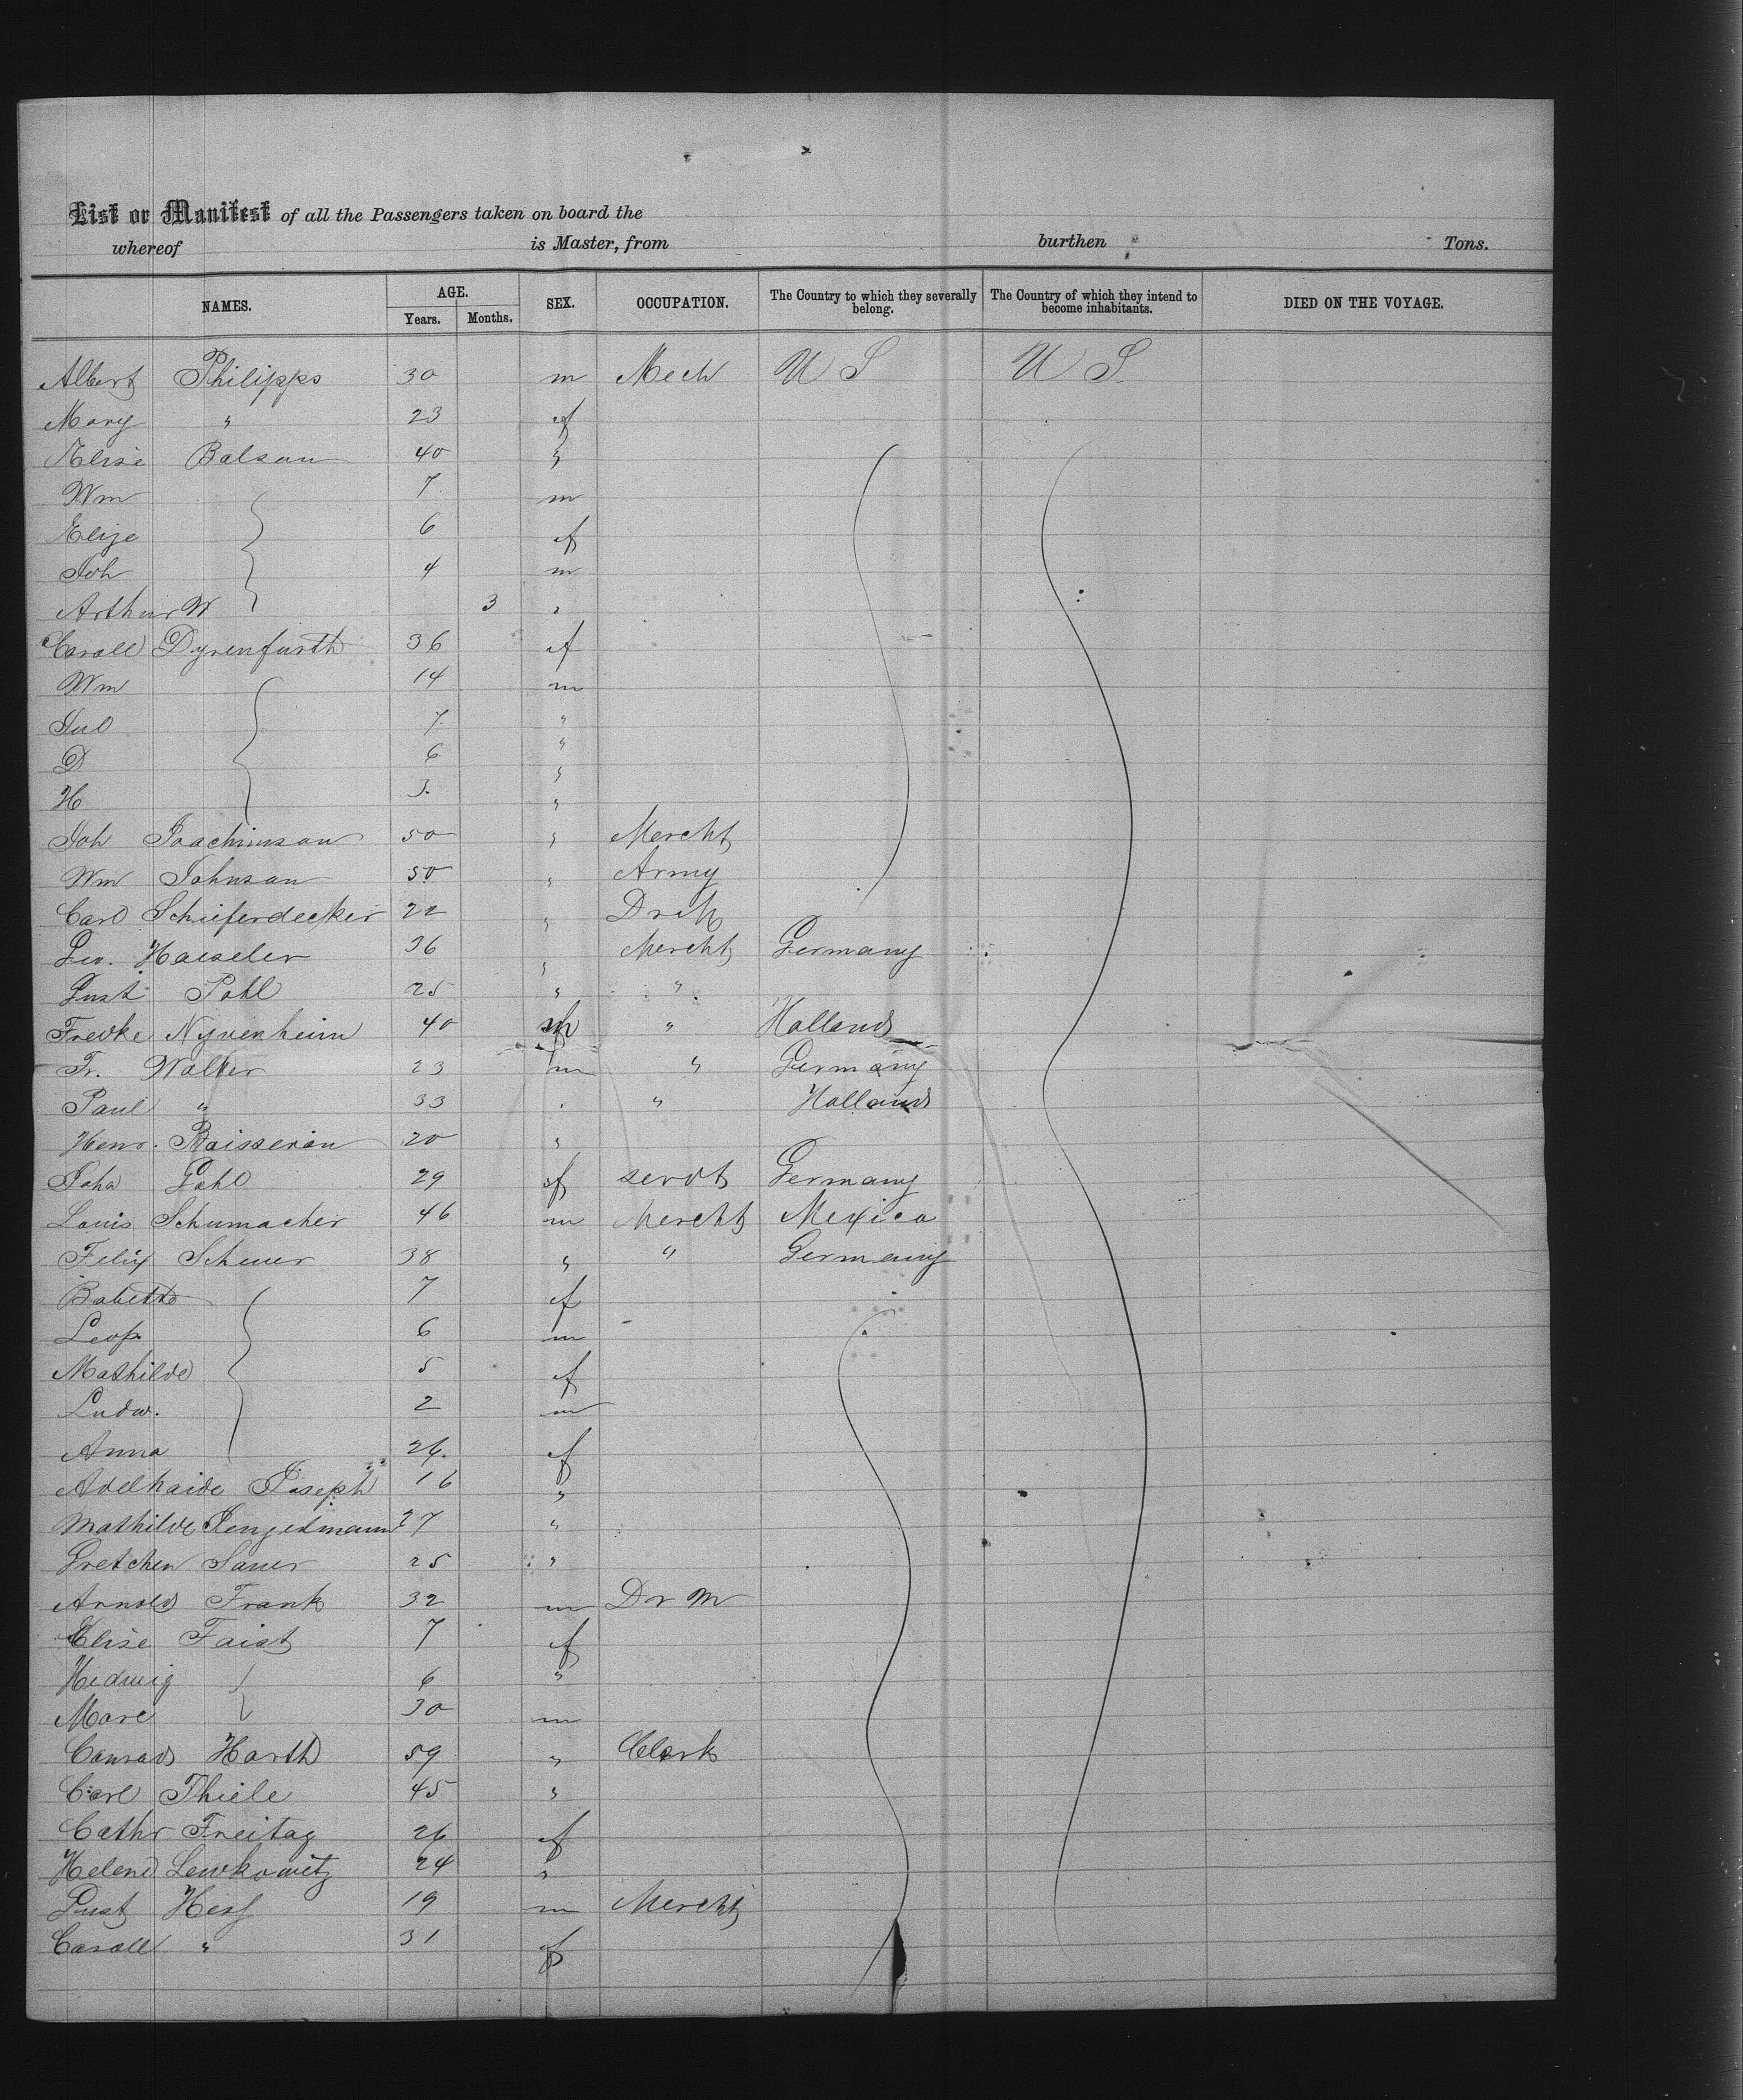 List or Manifest of all the Passengers taken on board the
whereof is Master, from burthen Tons.
NAMES. AGE. Years. Months. SEX. OCCUPATION. The Country to which they severally belong. The Country of which they intend to become inhabitants. DIED ON THE VOYAGE.
Albert Philipps 30 m Mech U S U S
Mary " 23 f
Elise Balsam 40 "
Wm 7 m
Elise 6 f
Joh 4 m
Arthur W 3 "
Caroll Dyrenfurth 36 f
Wm 14 m
Jul 7 "
D 6 "
H 3 "
Joh Joachimson 50 " Mercht
Wm Johnson 50 " Army
Carl Schieferdecker 22 "
Haeseler 36 " Mercht Germany
Gust Pohl 25 " "
Fredke Nyvenheim 40 " Holland
Fr. Walter 23 m " Germany
Paul " 33 " " Holland
Henr. 20 "
Joha Gohl 29 f servt Germany
Louis Schumacher 46 m Mercht Mexico
Felix Scheuer 38 " " Germany
Babette 7 f
Leop. 6 m
Mathilde 5 f
Ludw. 2 m
Anna 26 f
Adelhaide Joseph 16 "
Mathilde 27 "
Gretchen Sauer 25 "
Arnold Frank 32 m Dr M
Elise Faist 7 f
Hedwig 6 "
Marc 30 m
Conrad Harth 59 " Clerk
Carl Thiele 45 "
Cathr Freitag 26 f
Helene Lewkowitz 24 "
Gust Hess 19 m Mercht
Caroll " 31 f